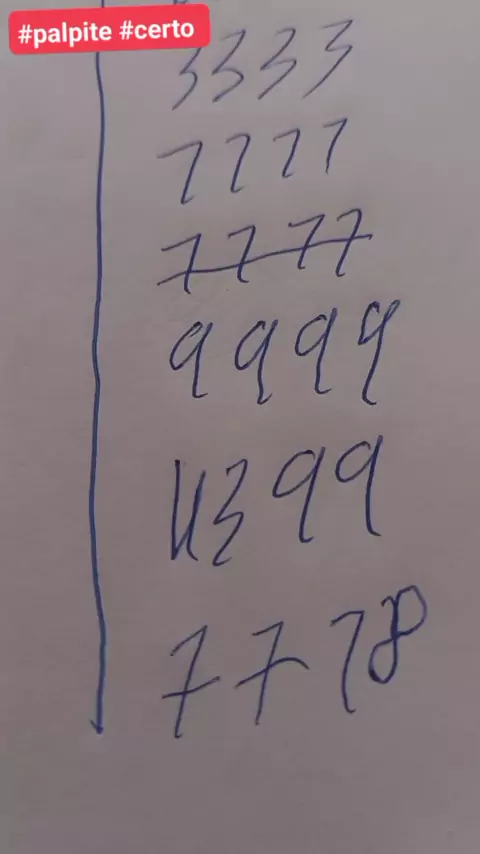 #palpite #certo
3333
7777
7777
9999
4399
7778